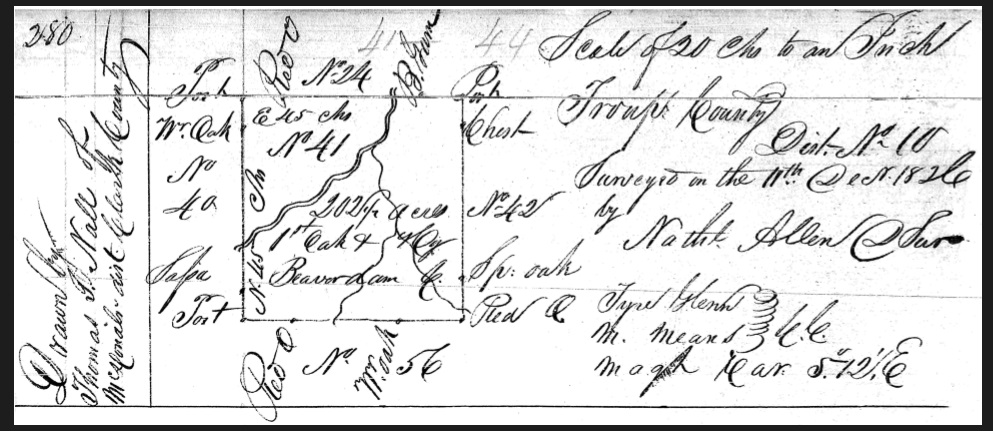 280
Drawn by
Thomas S. Nall of
McDonalds dist Clark County
41 44
Scale of 20 Chs to an Inch
Troup County
Dist. No 10
Surveyed on the 11th Decr. 1826
by
Nathl. Allen D Sur
Tyre Glenn
M. Means
C.C.
Magh Var. 5° 12' E
Post
Red O
No 24
B. Gum
Post
Wr. Oak
E 45 chs
Chest
No
No 41
40
N. 45 Chs
202 1/2 acres
No 42
1st Oak & Hy
Sassa
Beaverdam C.
Sp: oak
Post
Red O
Red O
No 56
Wr. oak